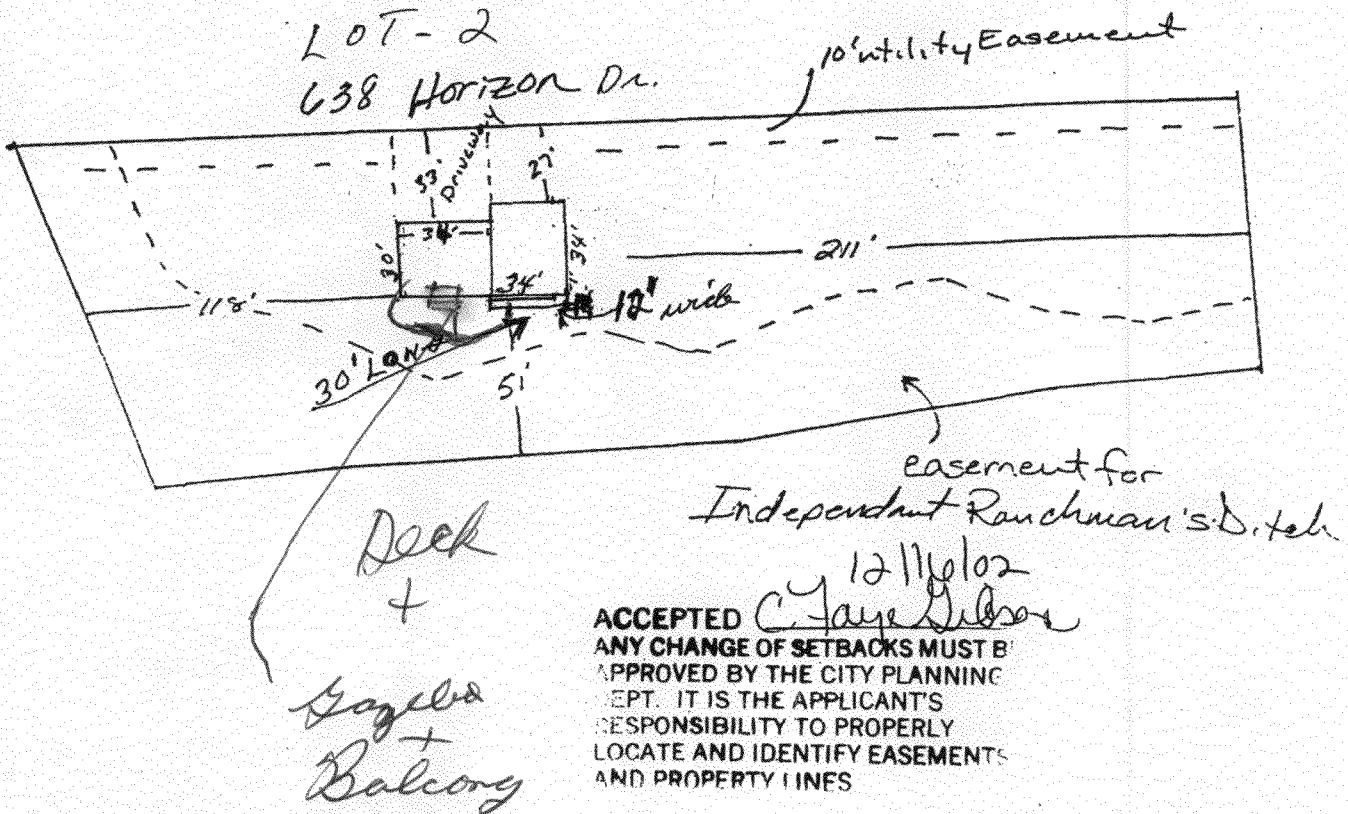 LOT-2
638 Horizon Dr.
10' utility Easement
Driveway
33'
27'
34'
30'
34'
34'
211'
118'
12" wide
30' LONG
51'
easement for
Independant Ranchman's Ditch
Deck
+
Gazebo
+
Balcony
12/16/02
ACCEPTED C. Faye Gibson
ANY CHANGE OF SETBACKS MUST B
APPROVED BY THE CITY PLANNING
EPT. IT IS THE APPLICANT'S
RESPONSIBILITY TO PROPERLY
LOCATE AND IDENTIFY EASEMENTS
AND PROPERTY LINES